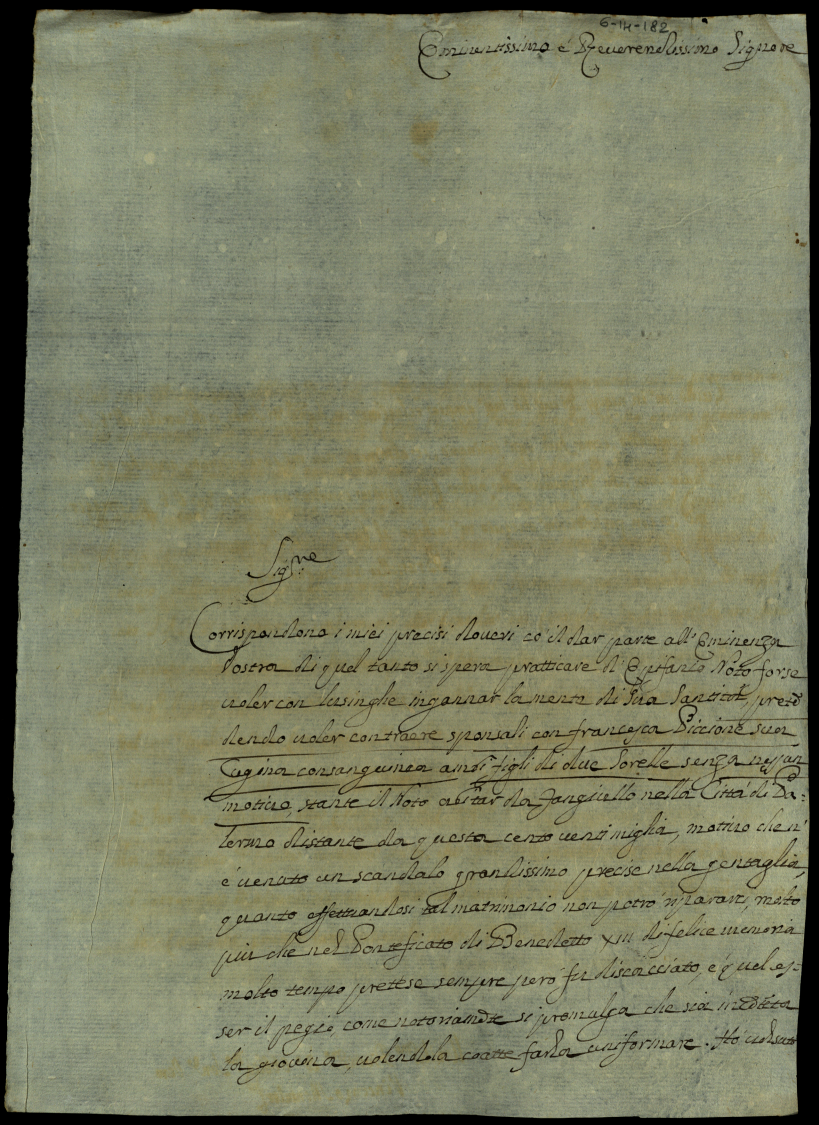 6-14-182
Eminentissimo é Reverendissimo Signore
Sig:re
Corrispondono i miei precisi doveri có il dar parte all'Eminenza
Vostra di quel tanto si spera pratticare di Epifanio Noto forse
voler con lusinghe ingannar la mente di Sua Santitá, pretē
dendo voler contraere sponsali con francesca Piccione sua
Cugina consanguinea amōi figli di due Sorelle senza nessun
motivo, stante il Noto da fanciullo nella Cittá di Pa=
lermo distante da questa cento venti miglia, motivo che n'
é venuto un scandalo grandissimo precise nella gentaglia,
quanto effettuandosi tal matrimonio non potrá ripararsi, molto
piú che nel Ponteficato di Benedetto XIII di felice memoria
molto tempo prettese sempre peró fu discacciato, é quel es=
ser il pegio, come notoriamte si promulga che sia
la giovina, volendola coatte farla uniformare. Hó